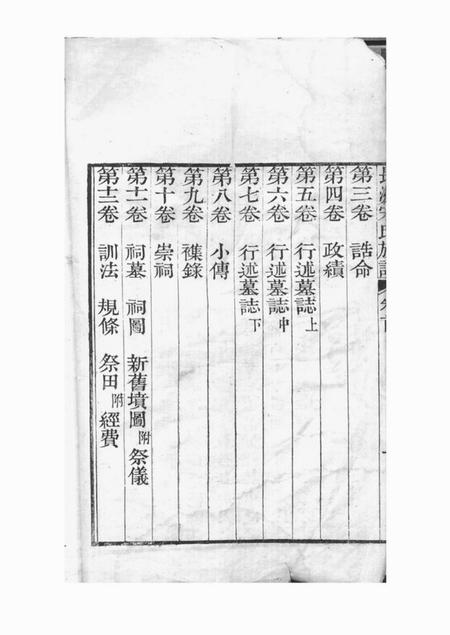 氏族譜
第三卷　誥命
第四卷　政績
第五卷　行述墓誌上
第六卷　行述墓誌中
第七卷　行述墓誌下
第八卷　小傳
第九卷　襍錄
第十卷　崇祠
第十一卷　祠墓　祠圖　新舊墳圖附祭儀
第十二卷　訓法　規條　祭田附經費